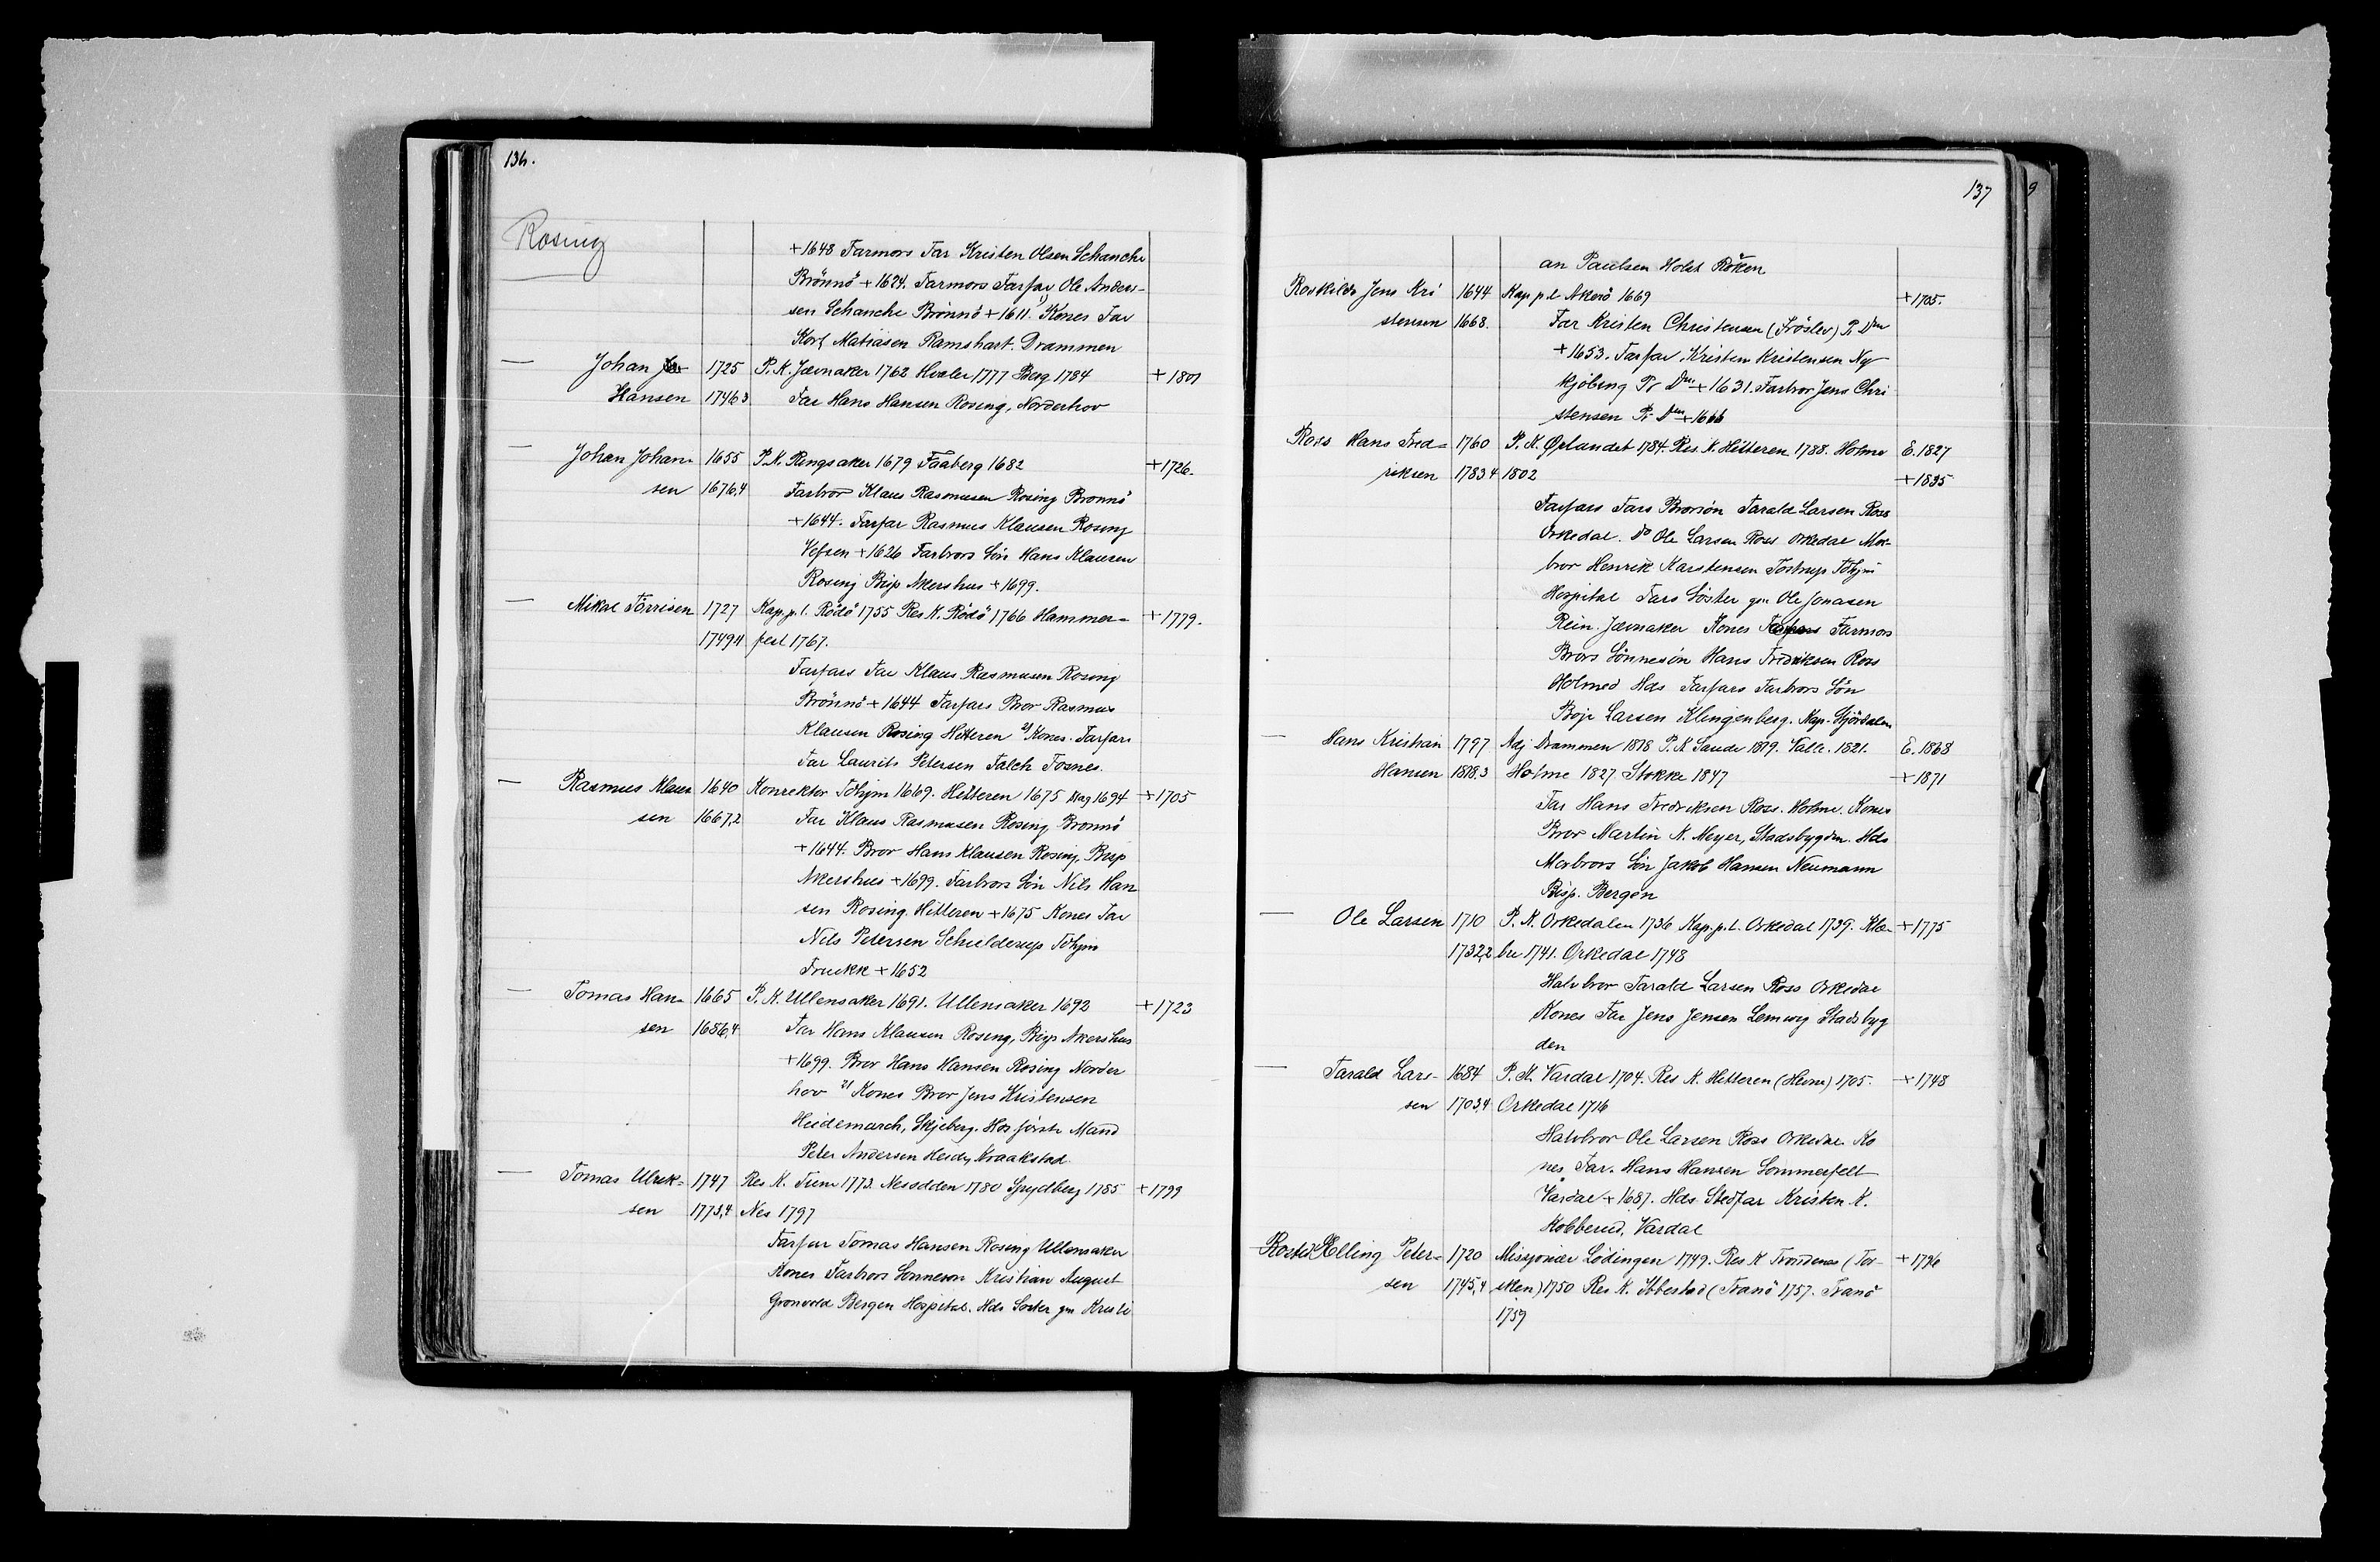 136.
Rosing
+1648 Farmors Far Kristen Olsen Schanche
Brönnö +1624. Farmors Farfar Ole Anders-
sen Schanche Brönnö +1611. 1) Kones Far
Kort Matiasen Ramshart. Drammen
— Johan 1725 P. K. Jævnaker 1762 Hvaler 1777 Berg 1784 +1801
Hansen 1746 3 Far Hans Hansen Rosing, Norderhov
— Johan Johan- 1655 P. K. Ringsaker 1679 Faaberg 1682 +1726.
sen 1676,4 Farbror Klaus Rasmusen Rosing Brønnö
+1644. Farfar Rasmus Klausen Rosing
Vefsen +1626 Farbrors Sön Hans Klausen
Rosing Bisp Akershus +1699.
— Mikal Törrisen 1727 Kap. p. l. Rödö 1755 Res K. Rödö 1766 Hammer- +1779.
1749 4 fest 1767.
Farfars Far Klaus Rasmusen Rosing
Brönnö +1644 Farfars Bror Rasmus
Klausen Rosing Hitteren 2) Kones Farfars
Far Laurits Petersen Falch Fosnes.
— Rasmus Klau- 1640 Konrektor Tdhjm 1669. Hitteren 1675 Mag 1694 +1705
sen 1667,2 Far Klaus Rasmusen Rosing Brønnö
+1644. Bror Hans Klausen Rosing, Bisp
Akershus +1699. Farbrors Sön Nils Han
sen Rosing. Hitteren +1675 Kones Far
Nils Petersen Schielderup Tdhjm
Fruekk +1652
— Tomas Han- 1665 P. K. Ullensaker 1691. Ullensaker 1692 +1723
sen 1686,4 Far Hans Klausen Rosing, Bisp Akershus
+1699. Bror Hans Hansen Rosing Norder
hov 2) Kones Bror Jens Kristensen
Heidemarch, Skjeberg. Hos förste Mand
Peter Andersen Kraakstad.
— Tomas Ulrik- 1747 Res. K. Tune 1773. Nesodden 1780 Spydberg 1785 +1799
sen 1773,4 Nes 1797
Farfar Tomas Hansen Rosing Ullensaker
Kones Farbrors Sönnesön Kristian August
Grønvold Bergen Hospital. Hds Søster gm Kristi
137
an Paulsen Holst Röken
Roskilde Jens Kri 1644 Kap p. l Akerö 1669 +1705.
stensen 1668. Far Kristen Christensen (Fröslev) P. Dm
+1653. Farfar Kristen Kristensen Ny
kjöbing Pr Dm +1631. Farbror Jens Chri
stensen Pr Dm +1666
Ross Hans Fred- 1760 P. K. Ørlandet 1784. Res. K. Hitteren 1788. Holme E. 1827
riksen 1783 4 1802 +1835
Farfars Fars Brorsön Tarald Larsen Ross
Orkedal. Do Ole Larsen Ross Orkedal Mor-
bror Henrik Karstensen Tostrup Tdhjm
Hospital Fars Söster gm Ole Jonasen
Rein. Jævnaker Kones Farfars Farmors
Brors Sönnesön Hans Fredriksen Ross
Holmed Hds Farfars Farbrors Sön
Boje Larsen Klingenberg. Kap. Stjördalen
— Hans Kristian 1797 Adj Drammen 1818 P. K Sande 1819. Valle. 1821. E. 1868
Hansen 1818.3 Holme 1827 Stokke 1847 +1871
Far Hans Fredriksen Ross. Holme. Kones
Bror Martin K. Meyer, Stadsbygden. Hds
Morbrors Sön Jakob Hansen Neumann
Bisp. Bergen
— Ole Larsen 1710 P. K. Orkedalen 1736 Kap. p. l. Orkedal 1739. Klæ- +1775
1732,2 bu 1741. Orkedal 1748
Halvbror Tarald Larsen Ross Orkedal
Kones Far Jens Jensen Lemvig Stadsbyg
den
— Tarald Lar- 1684 P. K. Vardal 1704. Res K. Hitteren (Hevne) 1705. +1748
sen 1703,4 Orkedal 1716
Halvbror Ole Larsen Ross Orkedal. Ko
nes Far. Hans Hansen Sommerfelt
Vardal +1687. Hds Stedfar Kristen K.
Kobberud, Vardal
Elling Peter- 1720 Missjonær Lödingen 1749. Res K Trondenes (Tor- +1796
sen 1745,4 sken) 1750 Res K. Ibbestad (Tranö 1757. Tranö
1759